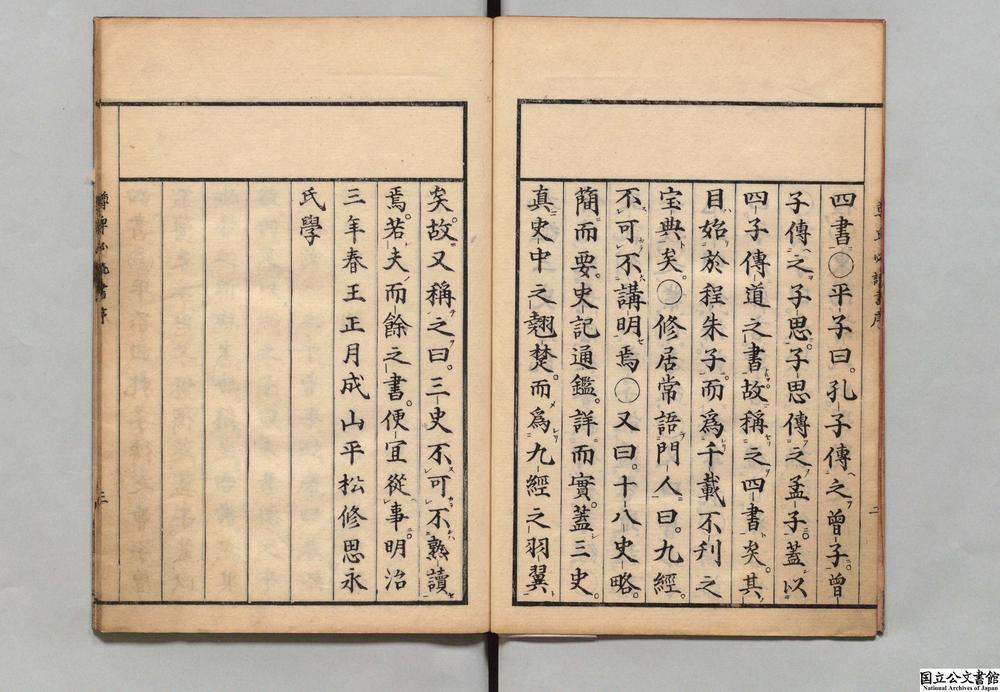 四書○平子曰。孔子傳之曾子。曾
子傳之子思。子思傳之孟子。蓋以
四子傳道之書。故稱之四書矣。其
目始於程朱子。而爲千載不利之
宝典矣。○修居常語門人曰。九經
不可不講明焉○又曰。十八史略。
簡而要。史記通鑑。詳而實。蓋三史。
真史中之翹楚。而爲九經之羽翼
矣。故又稱之曰。三史不可不熟讀
焉。若夫而餘之書。便宜從事。明治
三年春王正月成山平松修思永
氏學
二
三
国立公文書館
National Archives of Japan